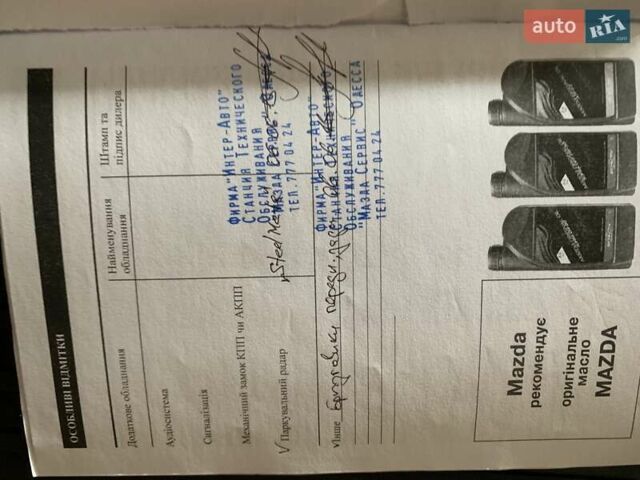 auto RIA.com
ОСОБЛИВІ ВІДМІТКИ
Додаткове обладнання
Найменування обладнання
Штамп та підпис дилера
Аудіосистема
Сигналізація
Механічний замок КПП чи АКПП
V Паркувальний радар
V Інше
ФИРМА "ИНТЕР-АВТО"
СТАНЦИЯ ТЕХНИЧЕСКОГО
ОБСЛУЖИВАНИЯ
ТЕЛ. 777 04 24
ФИРМА "ИНТЕР-АВТО"
ОБСЛУЖИВАНИЯ
"МАЗДА СЕРВИС" ОДЕССА
ТЕЛ. 777 04 24
Mazda
рекомендує
оригінальне
масло
MAZDA